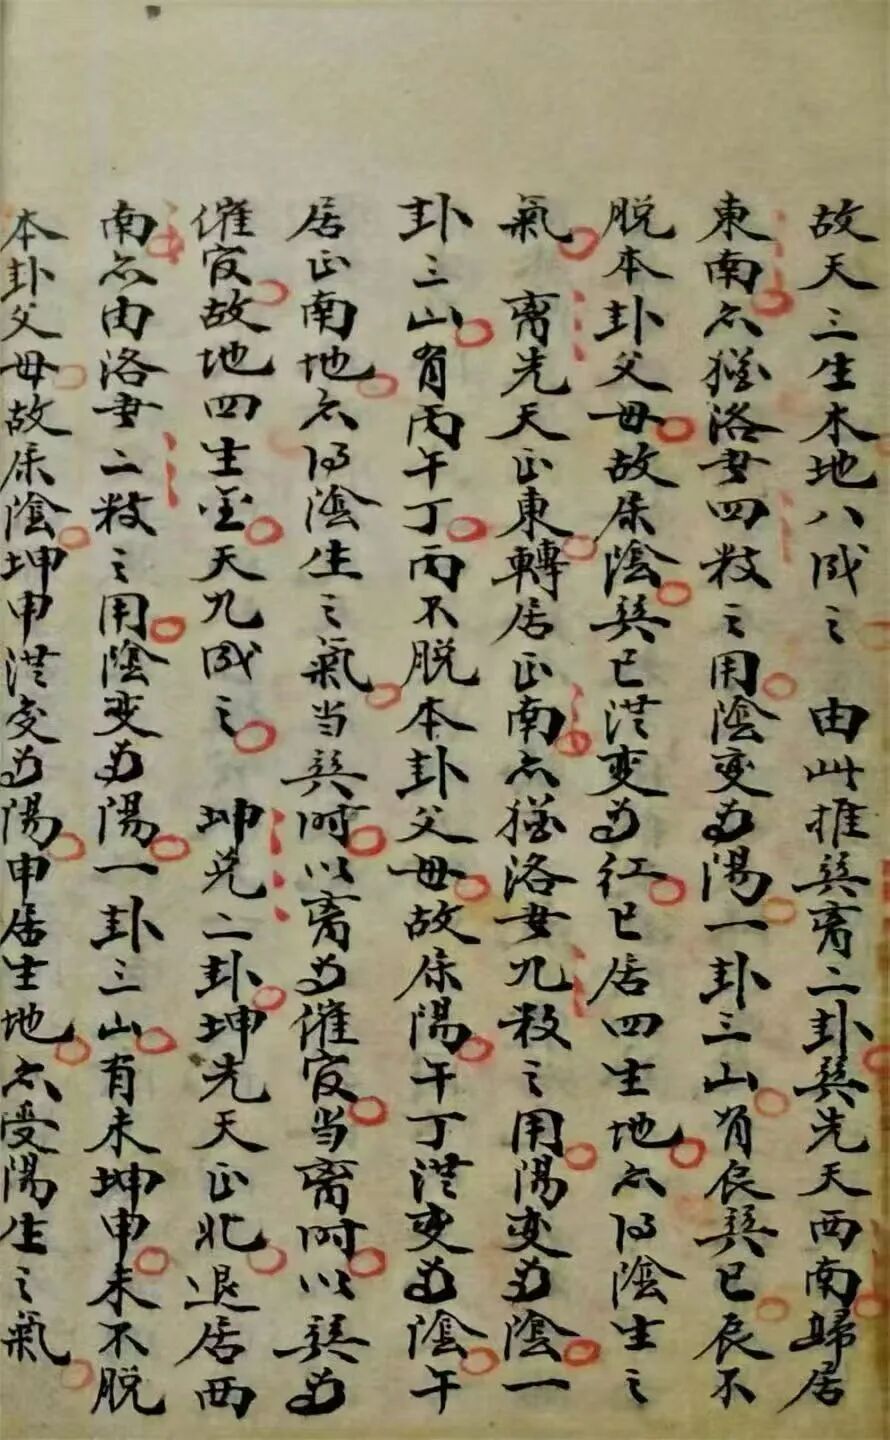 故天三生木地八成之　由此推巽离二卦巽先天西南歸居
東南亦猶洛書四数之用陰变为陽一卦三山有辰巽巳辰不
脱本卦父母故属陰巽巳洪变为红巳居四生地亦得陰生之
氣　离先天正東轉居正南亦猶洛書九数之用陽变为陰一
卦三山有丙午丁丙不脱本卦父母故属陽午丁洪变为陰午
居正南地亦得陰生之氣当巽时以离为催官当离时以巽为
催官故地四生金天九成之　坤兑二卦坤先天正北退居西
南亦由洛書二数之用陰变为陽一卦三山有未坤申未不脱
本卦父母故属陰坤申洪变为陽申居生地亦受陽生之氣